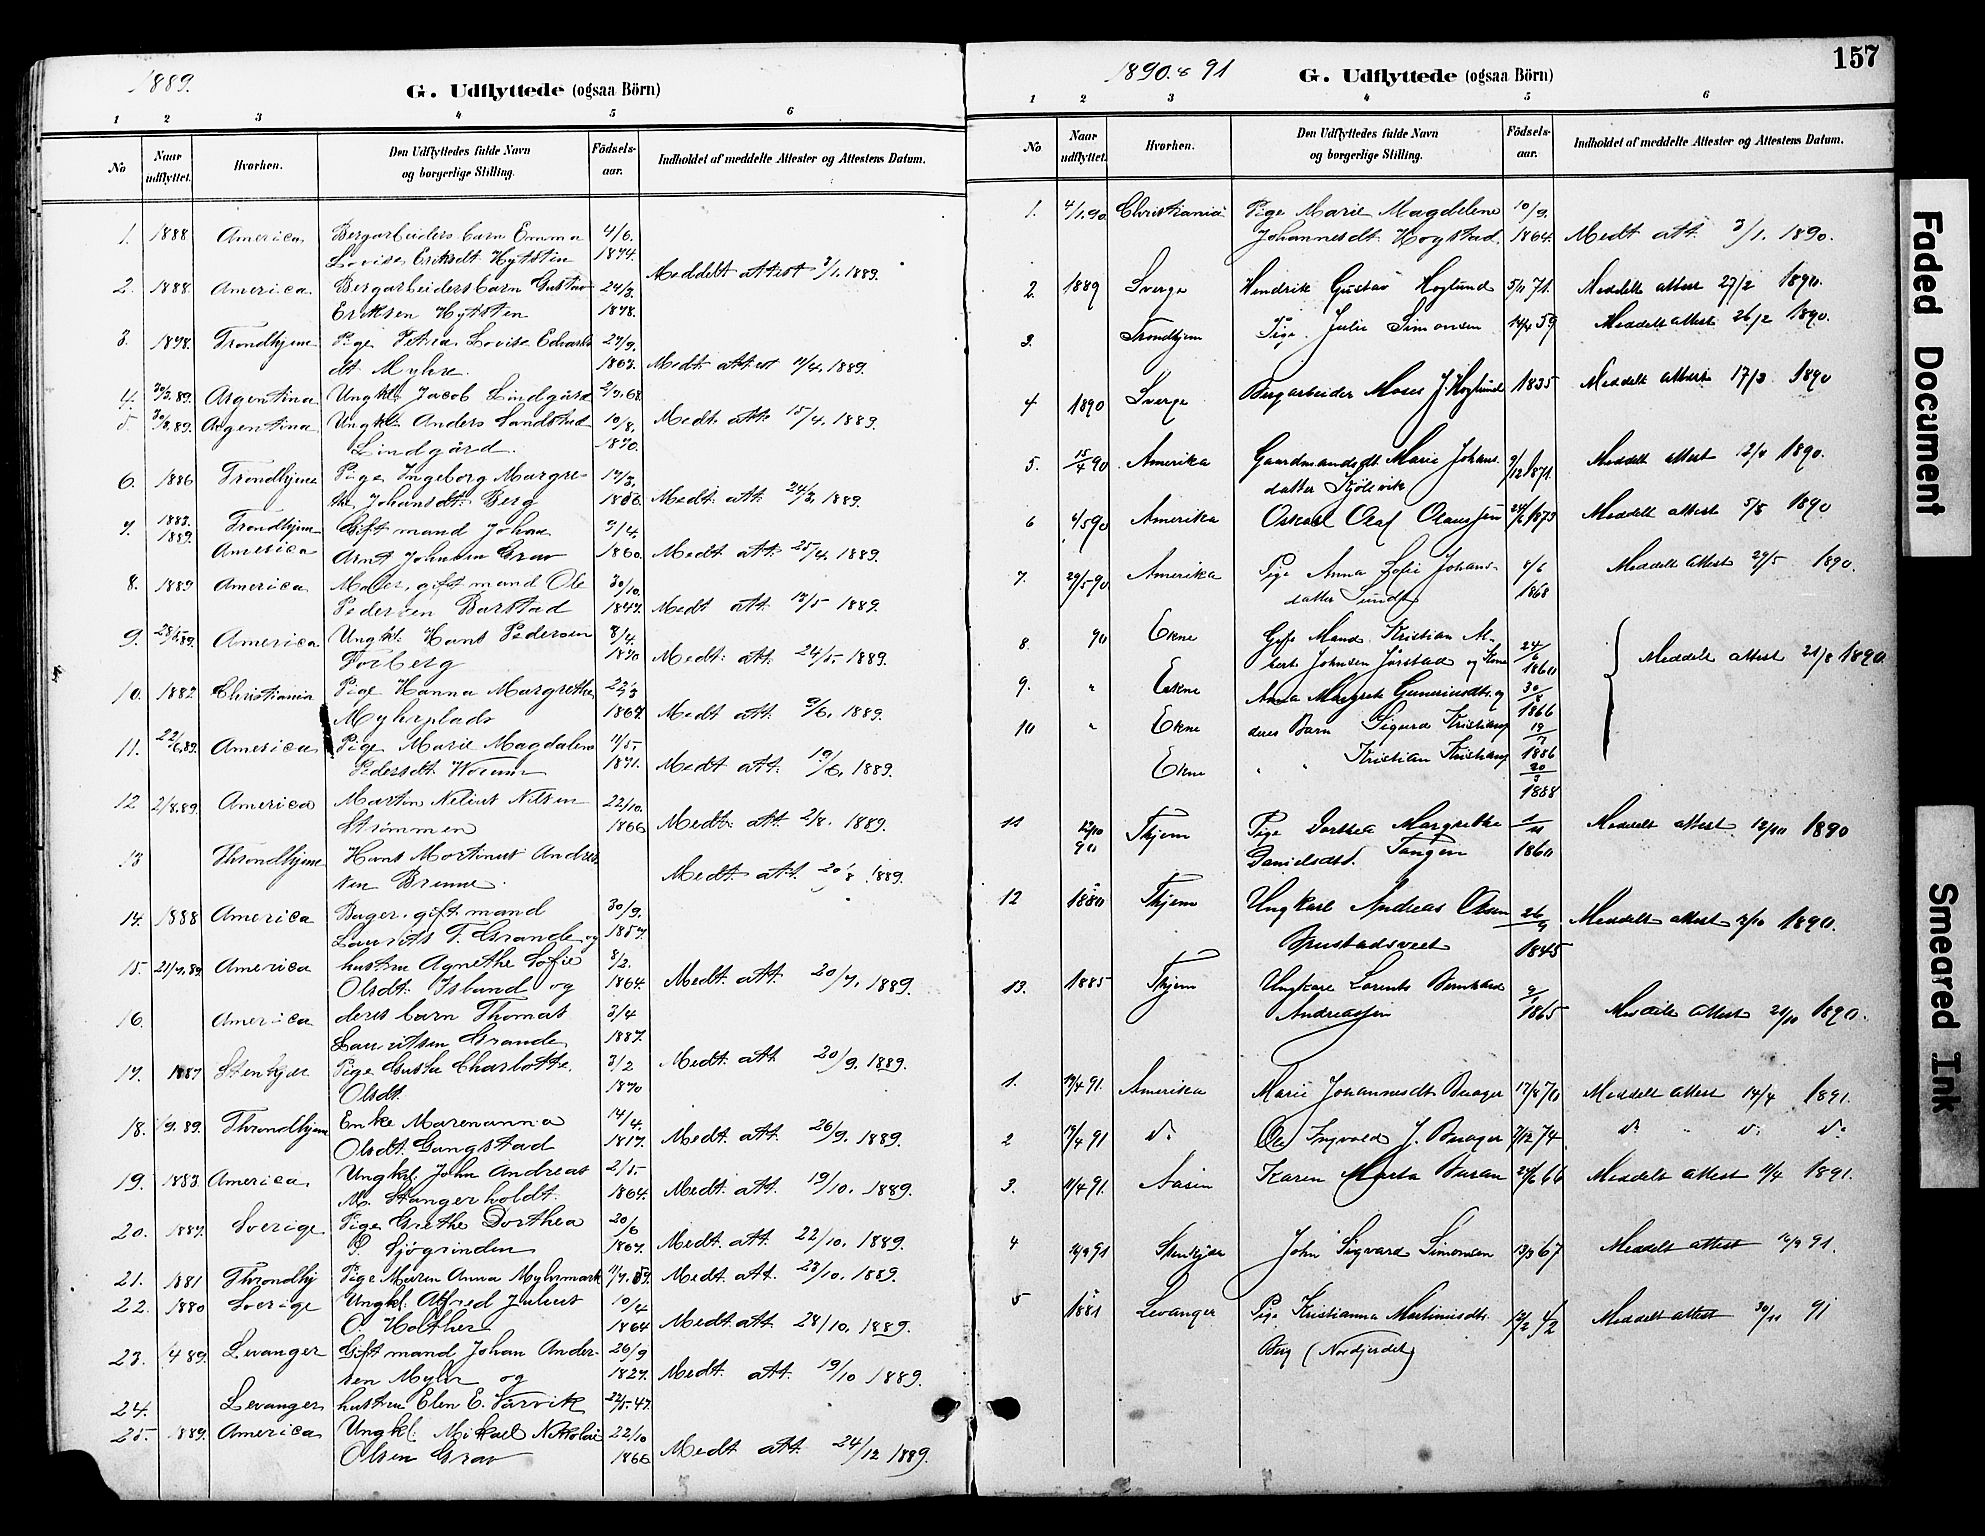 1889.
G. Udflyttede (ogsaa Börn)
1 2 3 4 5 6
No
Naar udflyttet.
Hvorhen.
Den Udflyttedes fulde Navn og borgerlige Stilling.
Födsels-aar.
Indholdet af meddelte Attester og Attestens Datum.
1. 1888 America Bergarbeiders barn Emma 4/6.
Lovise Eriksdt. Hytsten 1874.
Meddelt attest 3/1. 1889.
2. 1888 America Bergarbeiders barn Gustav 24/3.
Eriksen Hytsten 1878.
3. 1878. Trondhjem Pige Petrea Lovise Edvards 27/9.
dt. Myhre. 1863. Medt. attest 11/4. 1889.
4. 30/3.89. Argentina Ungkl. Jacob Lindgård 2/7.68.
5. 30/3.89. Argentina Ungkl. Anders Sandstad 10/8. Medt. att. 15/4. 1889.
Lindgård. 1870.
6. 1886 Trondhjem Pige Ingeborg Margre- 12/3.
the Johansdt. Berg 1856. Medt. att. 24/3. 1889.
7. 1883. Trondhjem Gift mand Johan 9/4.
1889. America Arnt Johnsen Grav 1860. Medt. att. 25/4. 1889.
8. 1889 America Maler, gift mand Ole 30/10.
Pedersen Barstad 1847. Medt. att. 13/5 1889.
9. 28/5.89. America Ungkl. Hans Pedersen 8/4.
Forberg 1870 Medt. att. 24/5. 1889.
10. 1882 Christiania Pige Hanna Margrethe
Myhrplads 1867. Medt. att. 9/6. 1889.
11. 22/6.89. America Pige Marie Magdalena 11/5.
Pedersdt. 1871. Medt. att. 19/6. 1889.
12 2/8.89. America Martin Nelius Nilsen 22/10.
Strömmen 1866 Medt. att. 2/8. 1889.
13 Throndhjem Hans Martinus Andrea
sen Brenne. Medt. att. 20/8. 1889.
14. 1888 America Bager, gift mand 30/9.
Laurits T. Grande og 1857.
15. 21/7.89 America hustru Agnethe Sofie 8/2.
Olsdt. Island og 1864. Medt. att. 20/7. 1889.
16. America deres barn Thomas 3/4
Lauritsen Grande 1887.
17. 1887 Stenkjær Pige Gusta Charlotte 3/2 Medt. att. 20/9. 1889.
Olsdt. 1870
18. 1/9.89. Throndhjem Enke Marenanna 14/4.
Olsdt. Gangstad 1817. Medt. att. 26/9. 1889.
19. 1883 America Ungkl. John Andreas 2/5.
M. Stangerholdt. 1864. Medt. att. 19/10. 1889.
20. 1887. Sverige Pige Grethe Dorthea 20/6
P. Sjögrinden 1867. Medt. att. 22/10. 1889.
21. 1881 Throndhj Pige Maren Anna Myhrmark 11/7.59. Medt. att. 23/10. 1889.
22. 1880 Sverige Ungkl. Alfred Julius 10/4
O. Holther 1864 Medt. att. 28/10. 1889.
23. 4 89. Levanger Gift mand Johan Ander- 26/9
sen Myhr og 1827. Medt. att. 19/10 1889.
24. Levanger hustru Elen E. Sarvik 22/5.47.
25. 1889. America Ungkl. Mikael Nikolai 22/10
Olsen Grav 1866 Medt. att. 24/12 1889.
157
1890. & 91
G. Udflyttede (ogsaa Börn)
1 2 3 4 5 6
No
Naar udflyttet.
Hvorhen.
Den Udflyttedes fulde Navn og borgerlige Stilling.
Födsels-aar.
Indholdet af meddelte Attester og Attestens Datum.
1. 4/1.90 Christiania Pige Marie Magdelene 10/9.
Johannesdt. Hogstad. 1864. Medt att. 3/1. 1890.
2. 1889 Sverge Hendrik Gustav Hoglund 5/11 71. Meddelt attest 27/2 1890.
3. Trondhjem Pige Julie Simonsen 14/4 59 Meddelt attest 26/2 1890.
4 1890 Sverge Bergarbeider Moses J. Hoglund 1835 Meddelt attest 17/3 1890
5. 15/4 90 Amerika Gaardmandsdt. Marie Johans 9/12 1871. Meddelt attest 12/4 1890.
datter Kjölsvik
6 4/5 90 Amerika Oskar Olaf Olaussen 24/6 1873 Meddelt attest 5/5 1890
7. 29/5 90 Amerika Pige Anna Sofie Johans 4/6 Meddelt attest 29/5 1890.
datter Sundt 1868
8. 90 Ekne Gift Mand Kristian Al- 24/6
bert Johnsen Jörstad og Kone 1860 Meddelt attest 21/8 1890
9. " Ekne Anna Margrete Gunerinsdt. og 30/8 1866
10 " Ekne deres Barn Sigurd Kristians 19/7 1886
Ekne " " Kristian Kristians 20/3 1888
11 12/10 90 Thjem Pige Dorthea Margrethe 1/11 Meddelt attest 12/10 1890
Danielsdt. Tangen 1860
12 1880 Thjem Ungkarl Andreas Olsen 26/9 Meddelt attest 2/10 1890.
Brustadsveet 1845
13. 1885 Thjem Ungkarl Lorents Bernhard
Andreassen 1865 Meddelt attest 21/10 1890.
1. 14/4 91. Amerika Marie Johannesdt. Buager 17/8 70 Meddelt attest 14/4 1891.
2 14/4 91 do Ole Ingvald J. Buager 2/12 74 do " do do
3. 11/4 91. Aasen Karen Marta Buran 24/6 66 Meddelt attest 11/4 1891.
4 16/9 91 Stenkjær John Sigvard Simonsen 13/3 67 Meddelt attest 16/9 91.
5 1881 Levanger Pige Kristianna Martinusdt. 12/2 42 Meddelt attest 30/11 91
Berg (Nordfjerdet)
Faded Document
Smeared Ink